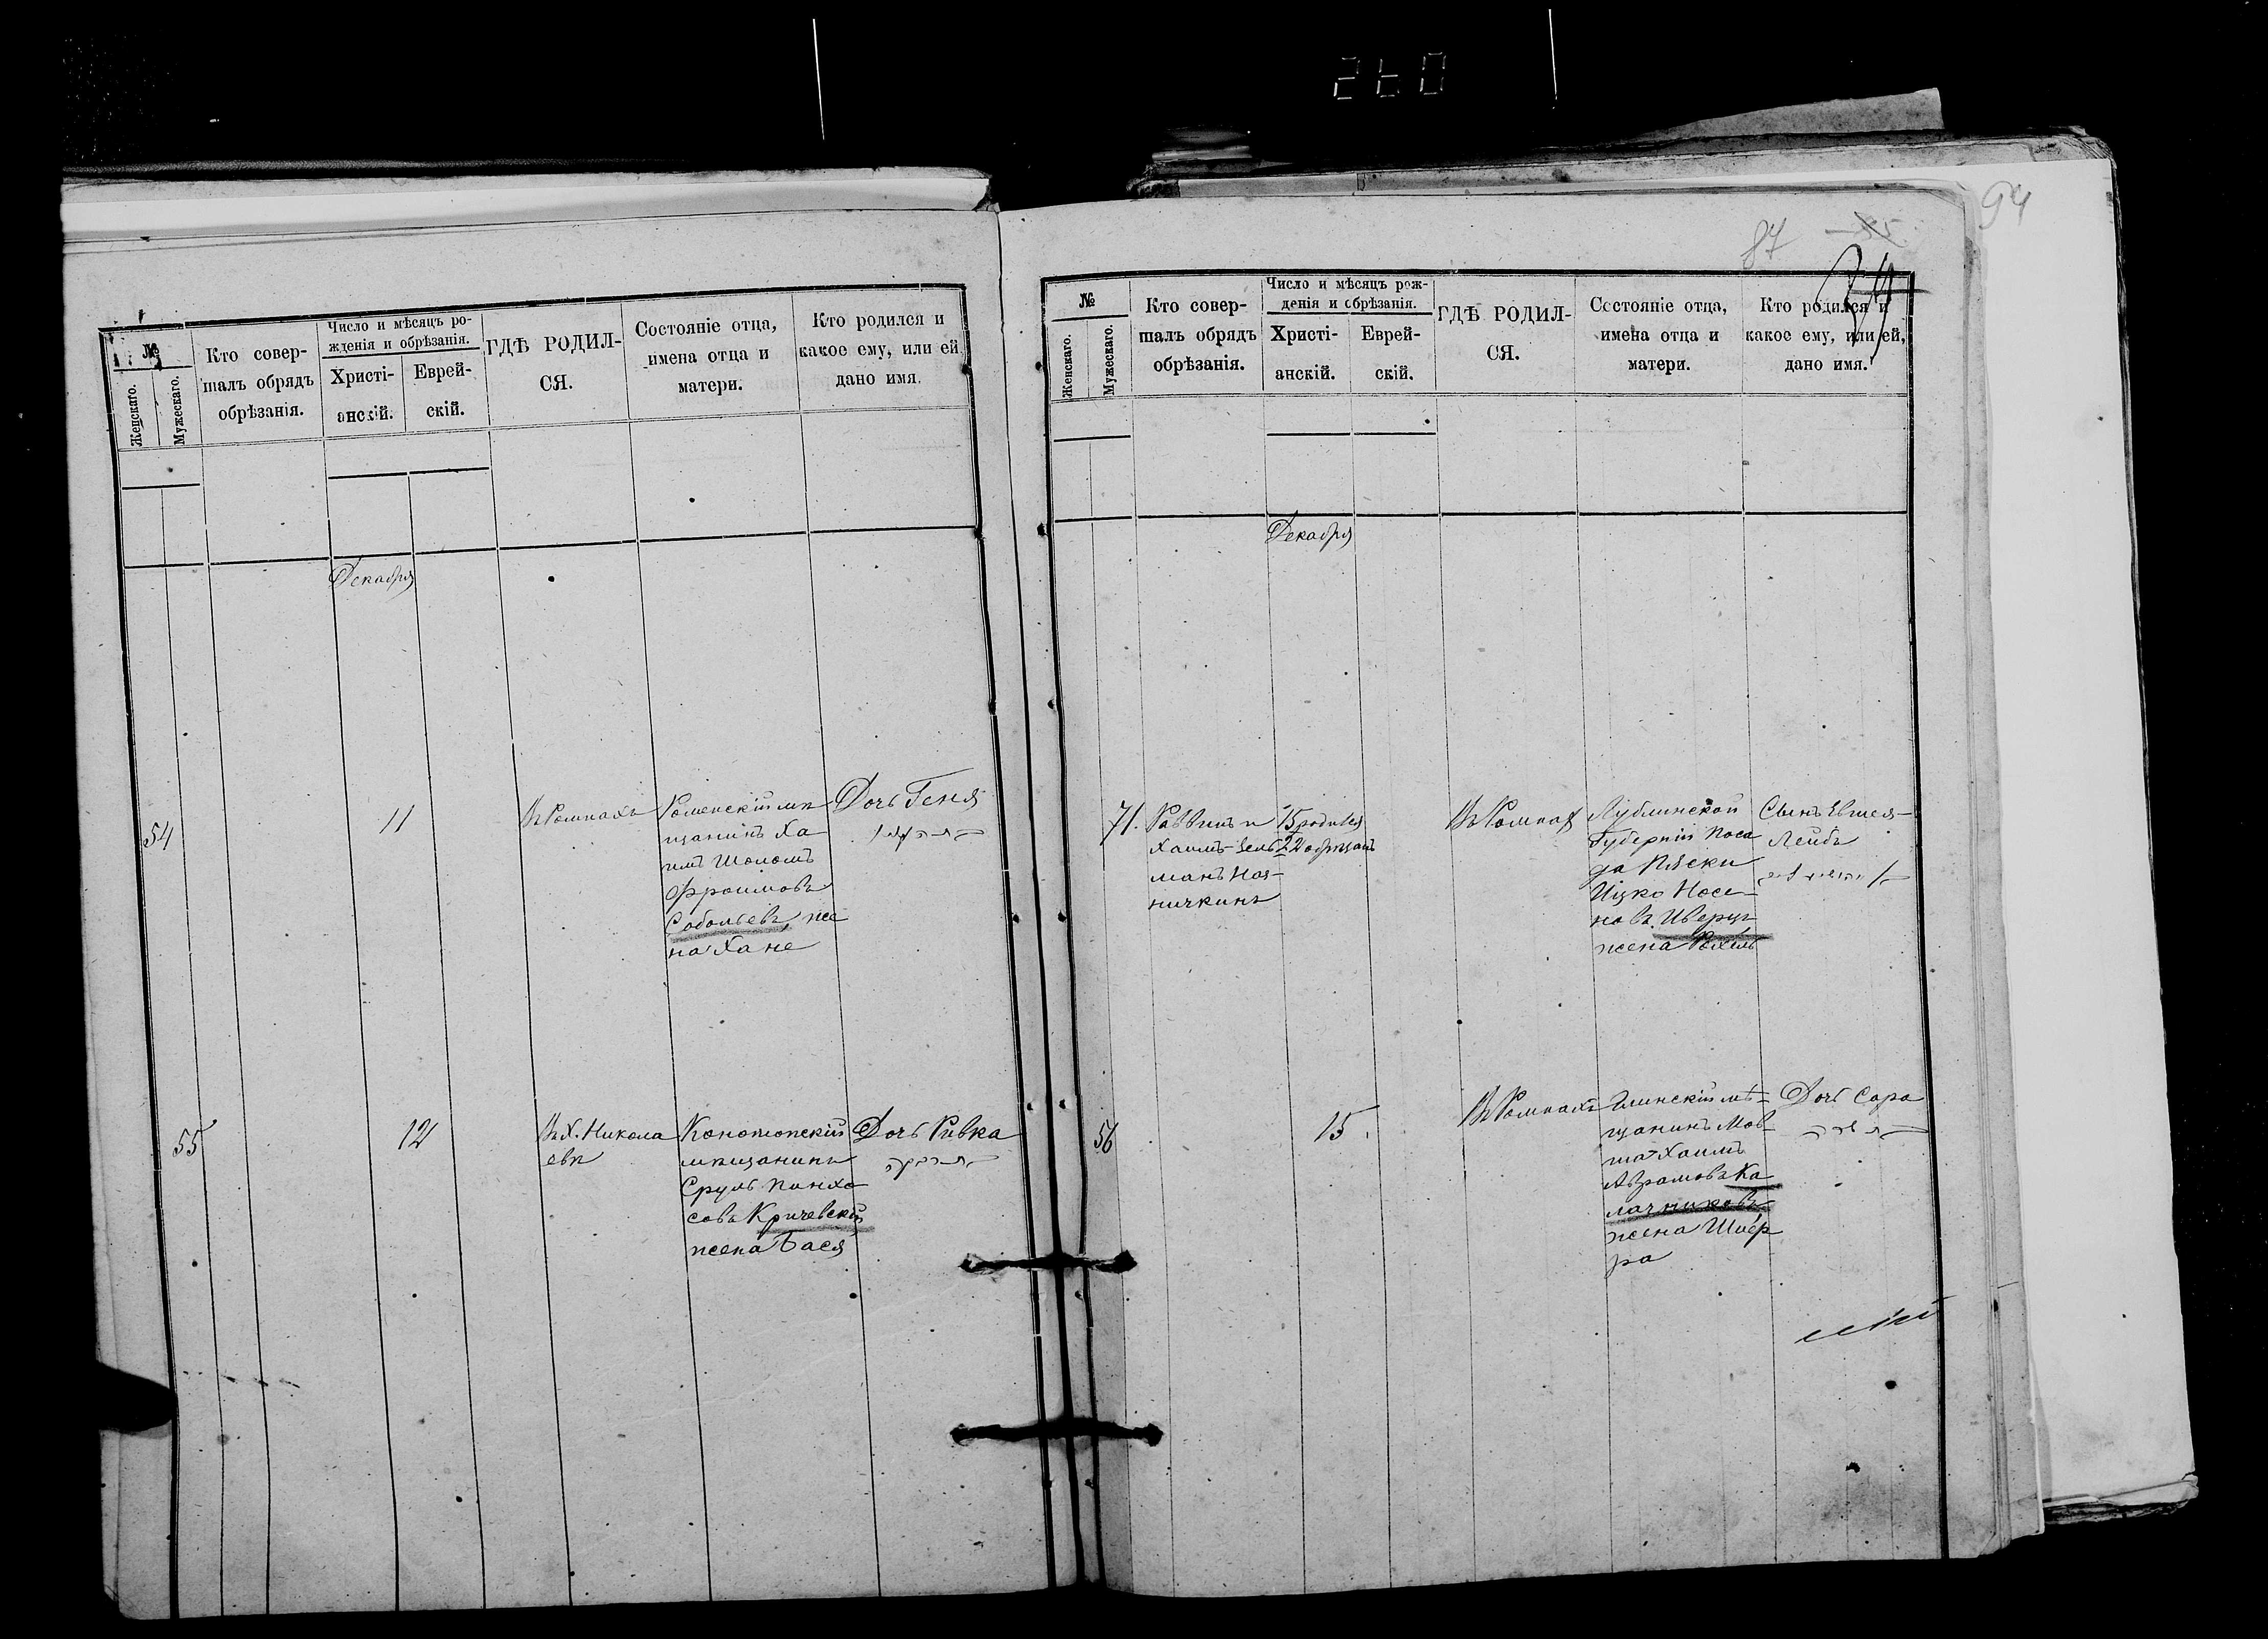 260
94
87
№
Женскаго.
Мужескаго.
Кто совер-
шалъ обрядъ
обрѣзанія.
Число и мѣсяцъ ро-
жденія и обрѣзанія.
Христі-
анскій.
Еврей-
скій.
ГДѢ РОДИЛ-
СЯ.
Состояніе отца,
имена отца и
матери.
Кто родился и
какое ему, или ей
дано имя.
Декабря
54
11
Въ Ромнахъ
Роменскій мѣ
щанинъ Ха
имъ Шоломъ
Фроимовъ
Собольевъ, же
на Хане
Дочь Геня
55
12
Въ Х. Никола
евк
Конотопскій
мѣщанинъ
Сруль Пинхо
совъ Кричевскій
жена Бася
Дочь Ривка
№
Женскаго.
Мужескаго.
Кто совер-
шалъ обрядъ
обрѣзанія.
Число и мѣсяцъ рож-
денія и обрѣзанія.
Христі-
анскій.
Еврей-
скій.
ГДѢ РОДИЛ-
СЯ.
Состояніе отца,
имена отца и
матери.
Кто родился и
какое ему, или ей,
дано имя.
Декабря
71.
Раввинъ и
Хаимъ-Зель
манъ Ноя-
ничкинъ
15 родился
22 обрѣзанъ
Въ Ромнах
Лублинской
Губерніи Поса
да Пяски
Ицко Носе-
новъ Иверъ
жена Рохель
Сынъ Евшея-
Лейбъ
56
15.
Въ Ромнахъ
Глинскій мѣ-
щанинъ Мов-
ша Хаимъ
Абрамовъ Ка
лачниковъ
жена Шиер
ра
Дочь Сора